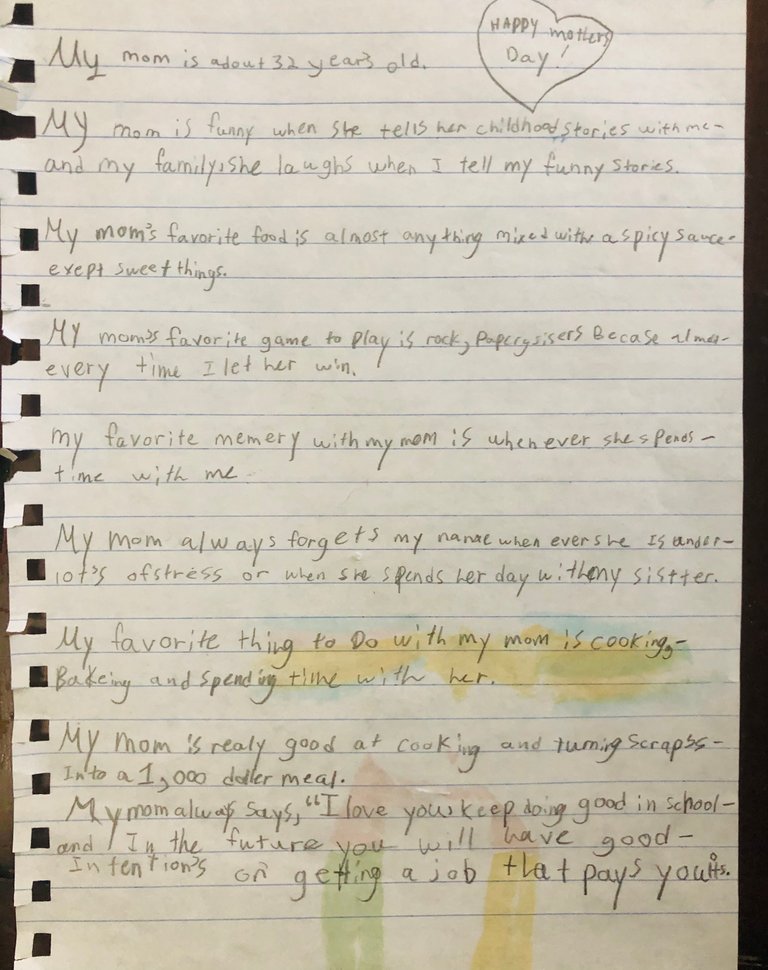 HAPPY mothers
Day!
My mom is adout 32 years old.
My mom is funny when she tells her childhood stories with me-
and my family, she laughs when I tell my funny stories.
My mom's favorite food is almost anything mixed with a spicy sauce-
exept sweet things.
My mom's favorite game to play is rock, paper, sisers Becase almost-
every time I let her win.
my favorite memery with my mom is whenever she spends-
time with me
My mom always forgets my name when ever she Is under-
lot's of stress or when she spends her day with my sistter.
My favorite thing to Do with my mom is cooking,-
Bakeing and spending time with her.
My mom is realy good at cooking and turning scraps-
Into a 1,000 doller meal.
My mom alway says, "I love you, keep doing good in school-
and In the future you will have good-
Intention's on getting a job that pays you